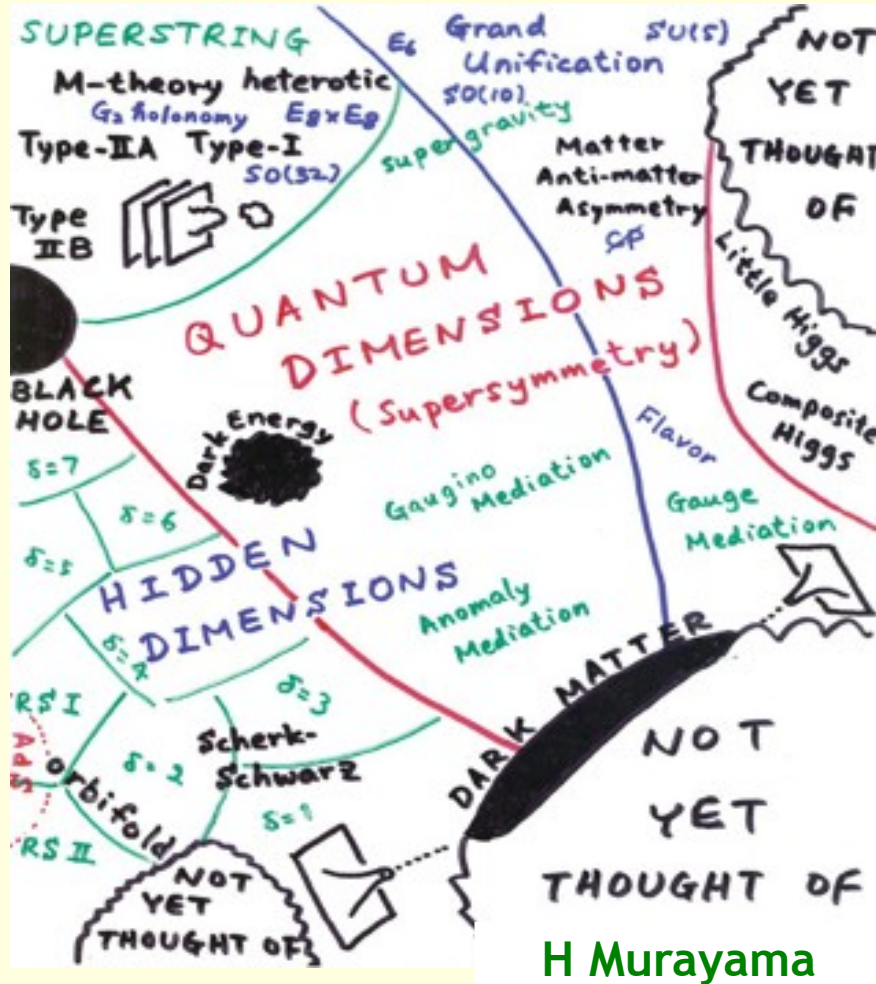 SUPERSTRING
M-theory heterotic
G₂ holonomy E8xE8
Type-IIA Type-I
SO(32)
Type
IIB
E6
Grand
Unification
SU(5)
SO(10)
supergravity
Matter
Anti-matter
Asymmetry
CP
NOT
YET
THOUGHT
OF
Little Higgs
Composite
Higgs
QUANTUM
DIMENSIONS
(Supersymmetry)
BLACK
HOLE
Dark Energy
Flavor
Gaugino
Mediation
Gauge
Mediation
Anomaly
Mediation
δ=7
δ=6
δ=5
HIDDEN
DIMENSIONS
δ=4
δ=3
RS I
AdS
orbifold
δ=2
Scherk-
Schwarz
δ=1
RS II
DARK MATTER
NOT
YET
THOUGHT OF
NOT
YET
THOUGHT OF
H Murayama